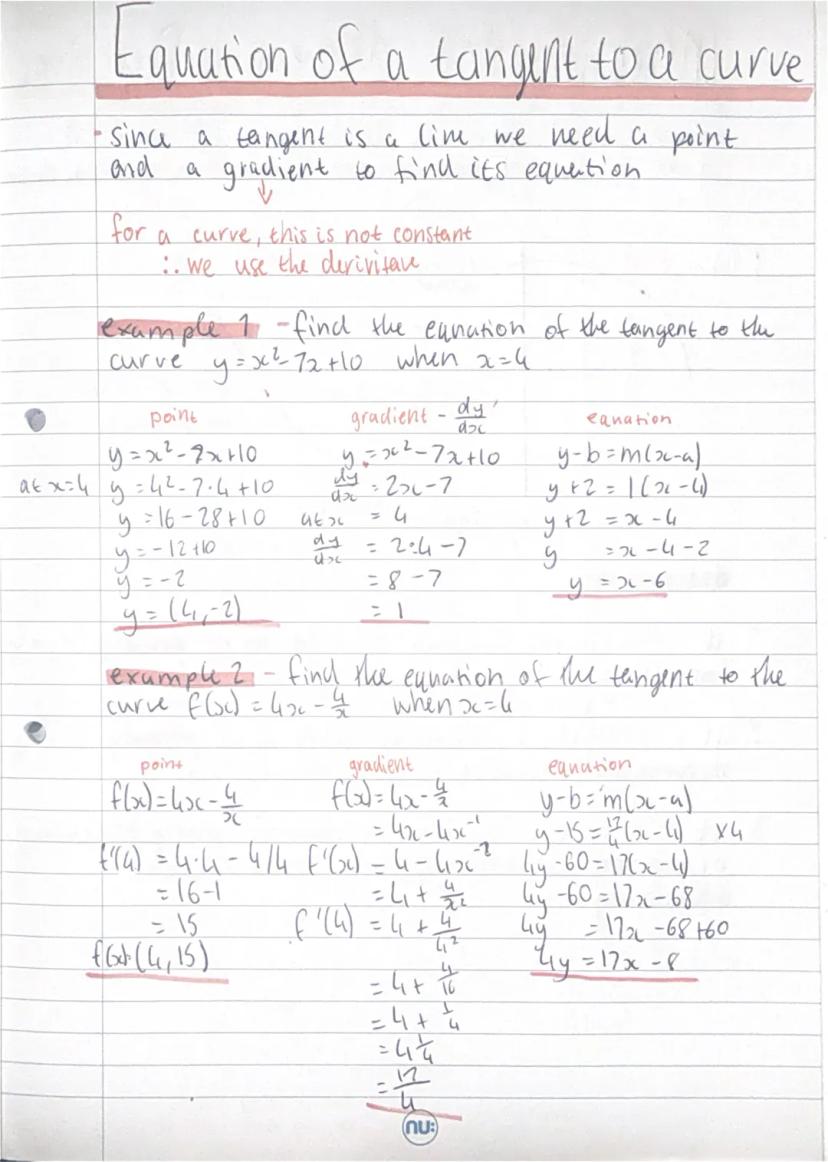 Equation of a tangent to a curve
- since a tangent is a line we need a point
and a gradient to find its equation
↓
for a curve, this is not constant
∴ we use the derivitave
example 1 - find the equation of the tangent to the
curve y = x² - 7x + 10 when x = 4
point gradient - dy/dx equation
y = x² - 7x + 10 y = x² - 7x + 10 y - b = m(x - a)
at x = 4 y = 4² - 7·4 + 10 dy/dx = 2x - 7 y + 2 = 1(x - 4)
y = 16 - 28 + 10 at x = 4 y + 2 = x - 4
y = -12 + 10 dy/dx = 2·4 - 7 y = x - 4 - 2
y = -2 = 8 - 7 y = x - 6
y = (4, -2) = 1
example 2 - find the equation of the tangent to the
curve f(x) = 4x - 4/x when x = 4
point gradient equation
f(x) = 4x - 4/x f(x) = 4x - 4/x y - b = m(x - a)
= 4x - 4x⁻¹ y - 15 = 17/4(x - 4) x4
f'(4) = 4·4 - 4/4 f'(x) = 4 - 4x⁻² 4y - 60 = 17(x - 4)
= 16 - 1 = 4 + 4/x² 4y - 60 = 17x - 68
= 15 f'(4) = 4 + 4/4² 4y = 17x - 68 + 60
f(x) (4, 15) 4y = 17x - 8
= 4 + 4/16
= 4 + 1/4
= 4 1/4
= 17/4
nu: